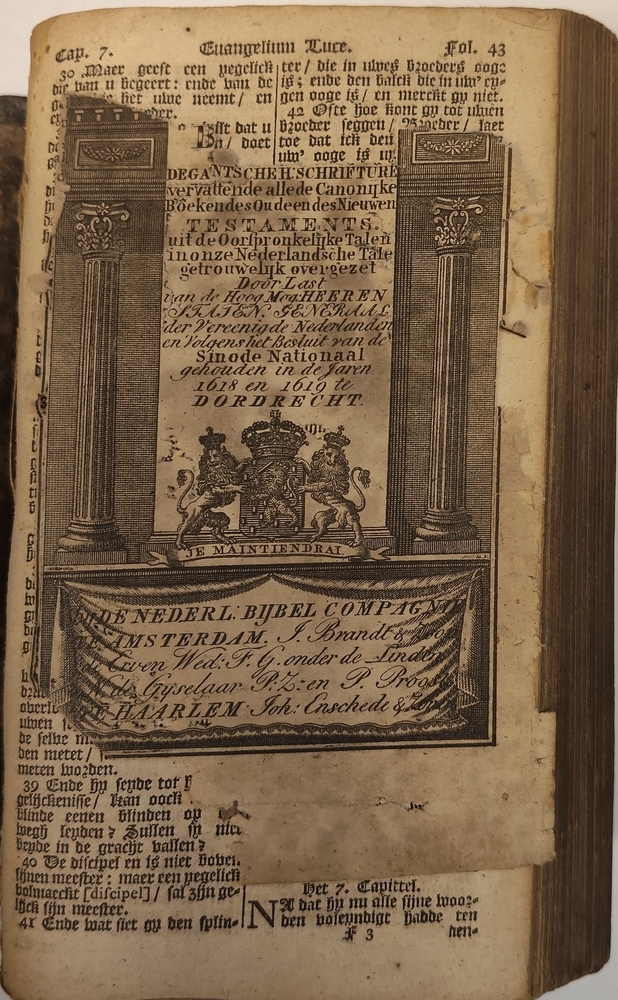 Cap. 7.
Euangelium Luce.
Fol. 43
30 Maer geeft een yegelick
die van u begeert: ende van de
het uwe neemt / en
eder.
dat u
doet
ter / die in uwes broeders ooge
is; ende den balck die in uw' ey-
gen ooge is / en merckt gy niet.
42 Ofte hoe kont gy tot uwen
broeder seggen / Broeder / laet
toe dat ick den
uw' ooge is
DE GANTSCHE H. SCHRIFTURE
vervattende alle de Canonijke
Boeken des Ouden en des Nieuwen
TESTAMENTS.
uit de Oorspronkelijke Talen
in onze Nederlandsche Tale
getrouwelijk overgezet
Door Last
van de Hoog Mog: HEEREN
STATEN GENERAAL
der Vereenigde Nederlanden
en Volgens het Besluit van de
Sinode Nationaal
gehouden in de Jaren
1618 en 1619 te
DORDRECHT.
JE MAINTIENDRAI.
DE NEDERL: BIJBEL COMPAGNIE
TE AMSTERDAM. J. Brandt & Zoon
de Erven Wed: F. G. onder de Linden
N. de Gyselaar P. Z: en P. Proost
TE HAARLEM Joh: Enschede & Zoon
uwen
de selve
den metet /
meten worden.
39 Ende hy seyde tot
gelijckenisse / Kan oock
blinde eenen blinden op
wegh leyden? Sullen sy niet
beyde in de gracht vallen?
40 De discipel en is niet boven
sijnen meester: maer een yegelick
volmaeckt [discipel] / sal zijn ge-
lijck sijn meester.
41 Ende wat siet gy den splin-
Het 7. Capittel.
NA dat hy nu alle sijne woor-
den voleyndigt hadde ten
F 3
hen-